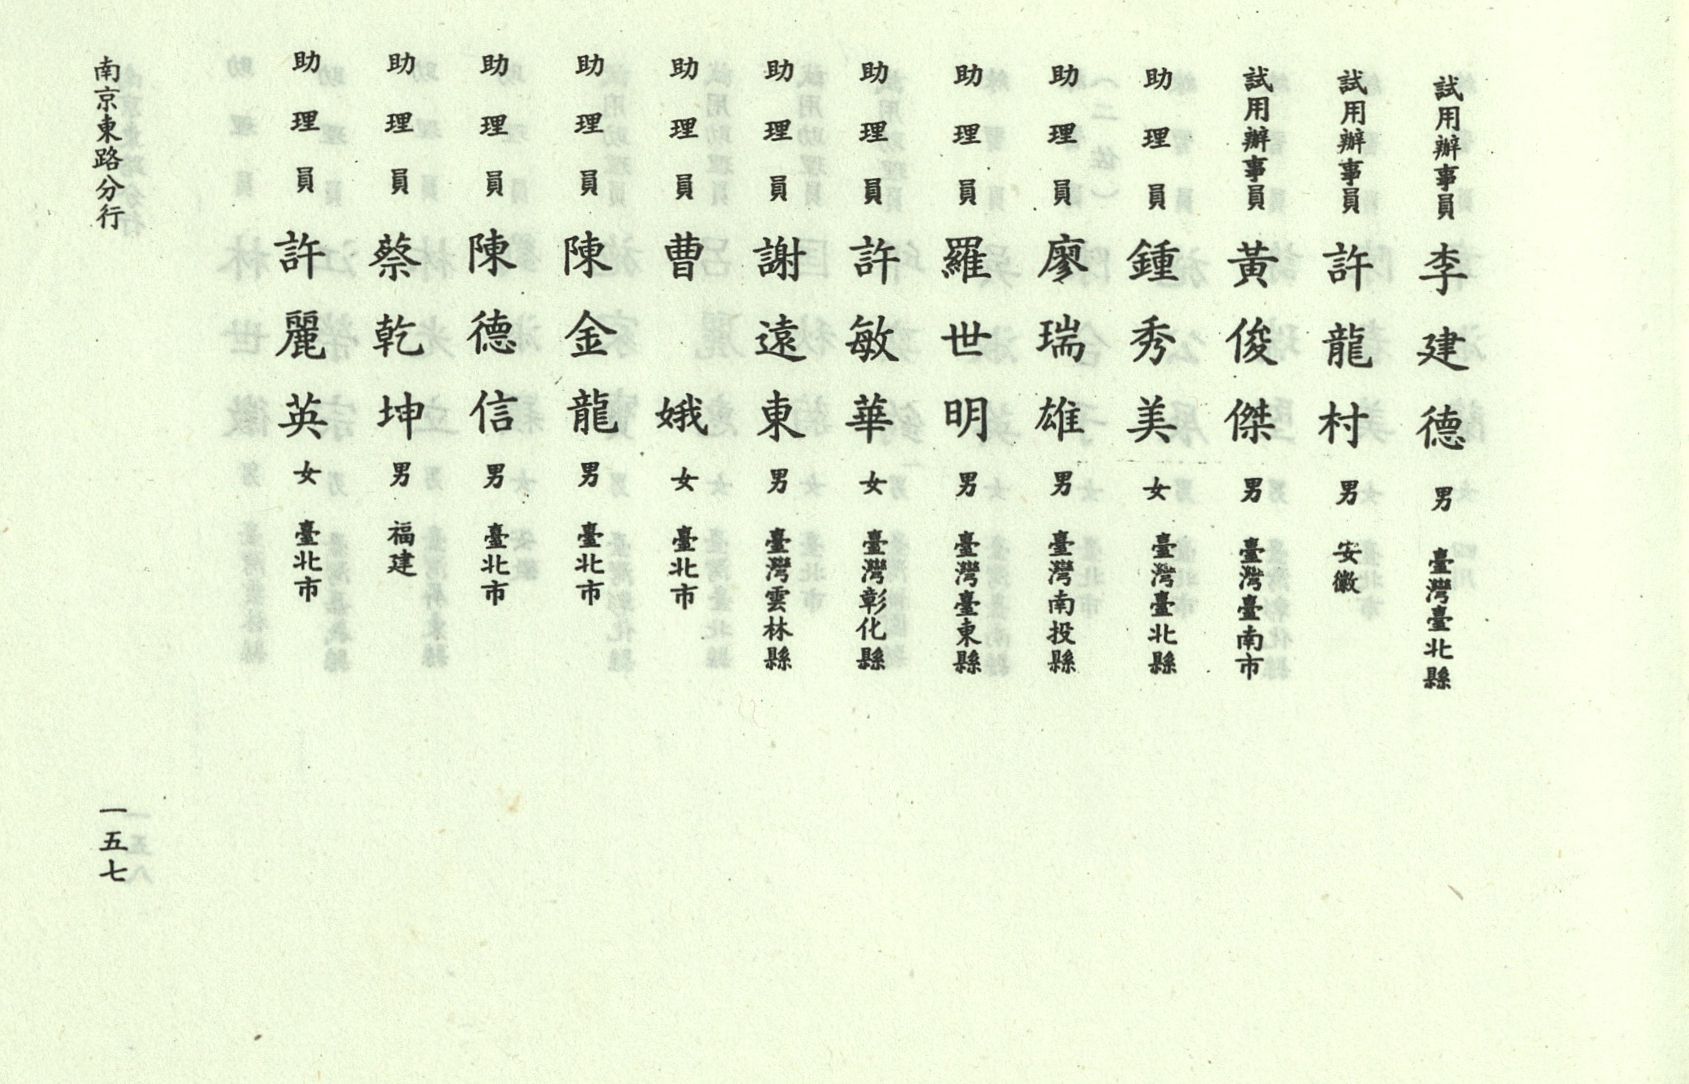 試用辦事員 李建德 男 臺灣臺北縣
試用辦事員 許龍村 男 安徽
試用辦事員 黃俊傑 男 臺灣臺南市
助理員 鍾秀美 女 臺灣臺北縣
助理員 廖瑞雄 男 臺灣南投縣
助理員 羅世明 男 臺灣臺東縣
助理員 許敏華 女 臺灣彰化縣
助理員 謝遠東 男 臺灣雲林縣
助理員 曹娥 女 臺北市
助理員 陳金龍 男 臺北市
助理員 陳德信 男 臺北市
助理員 蔡乾坤 男 福建
助理員 許麗英 女 臺北市
南京東路分行 一五七